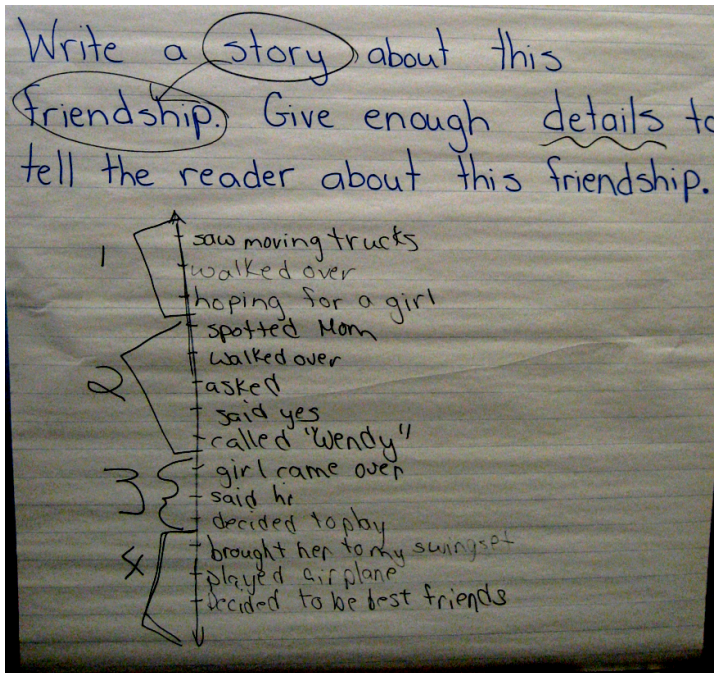 Write a story about this
friendship. Give enough details to
tell the reader about this friendship.
1
saw moving trucks
walked over
hoping for a girl
2
spotted Mom
walked over
asked
said yes
called "Wendy"
3
girl came over
said hi
decided to play
4
brought her to my swingset
played airplane
decided to be best friends